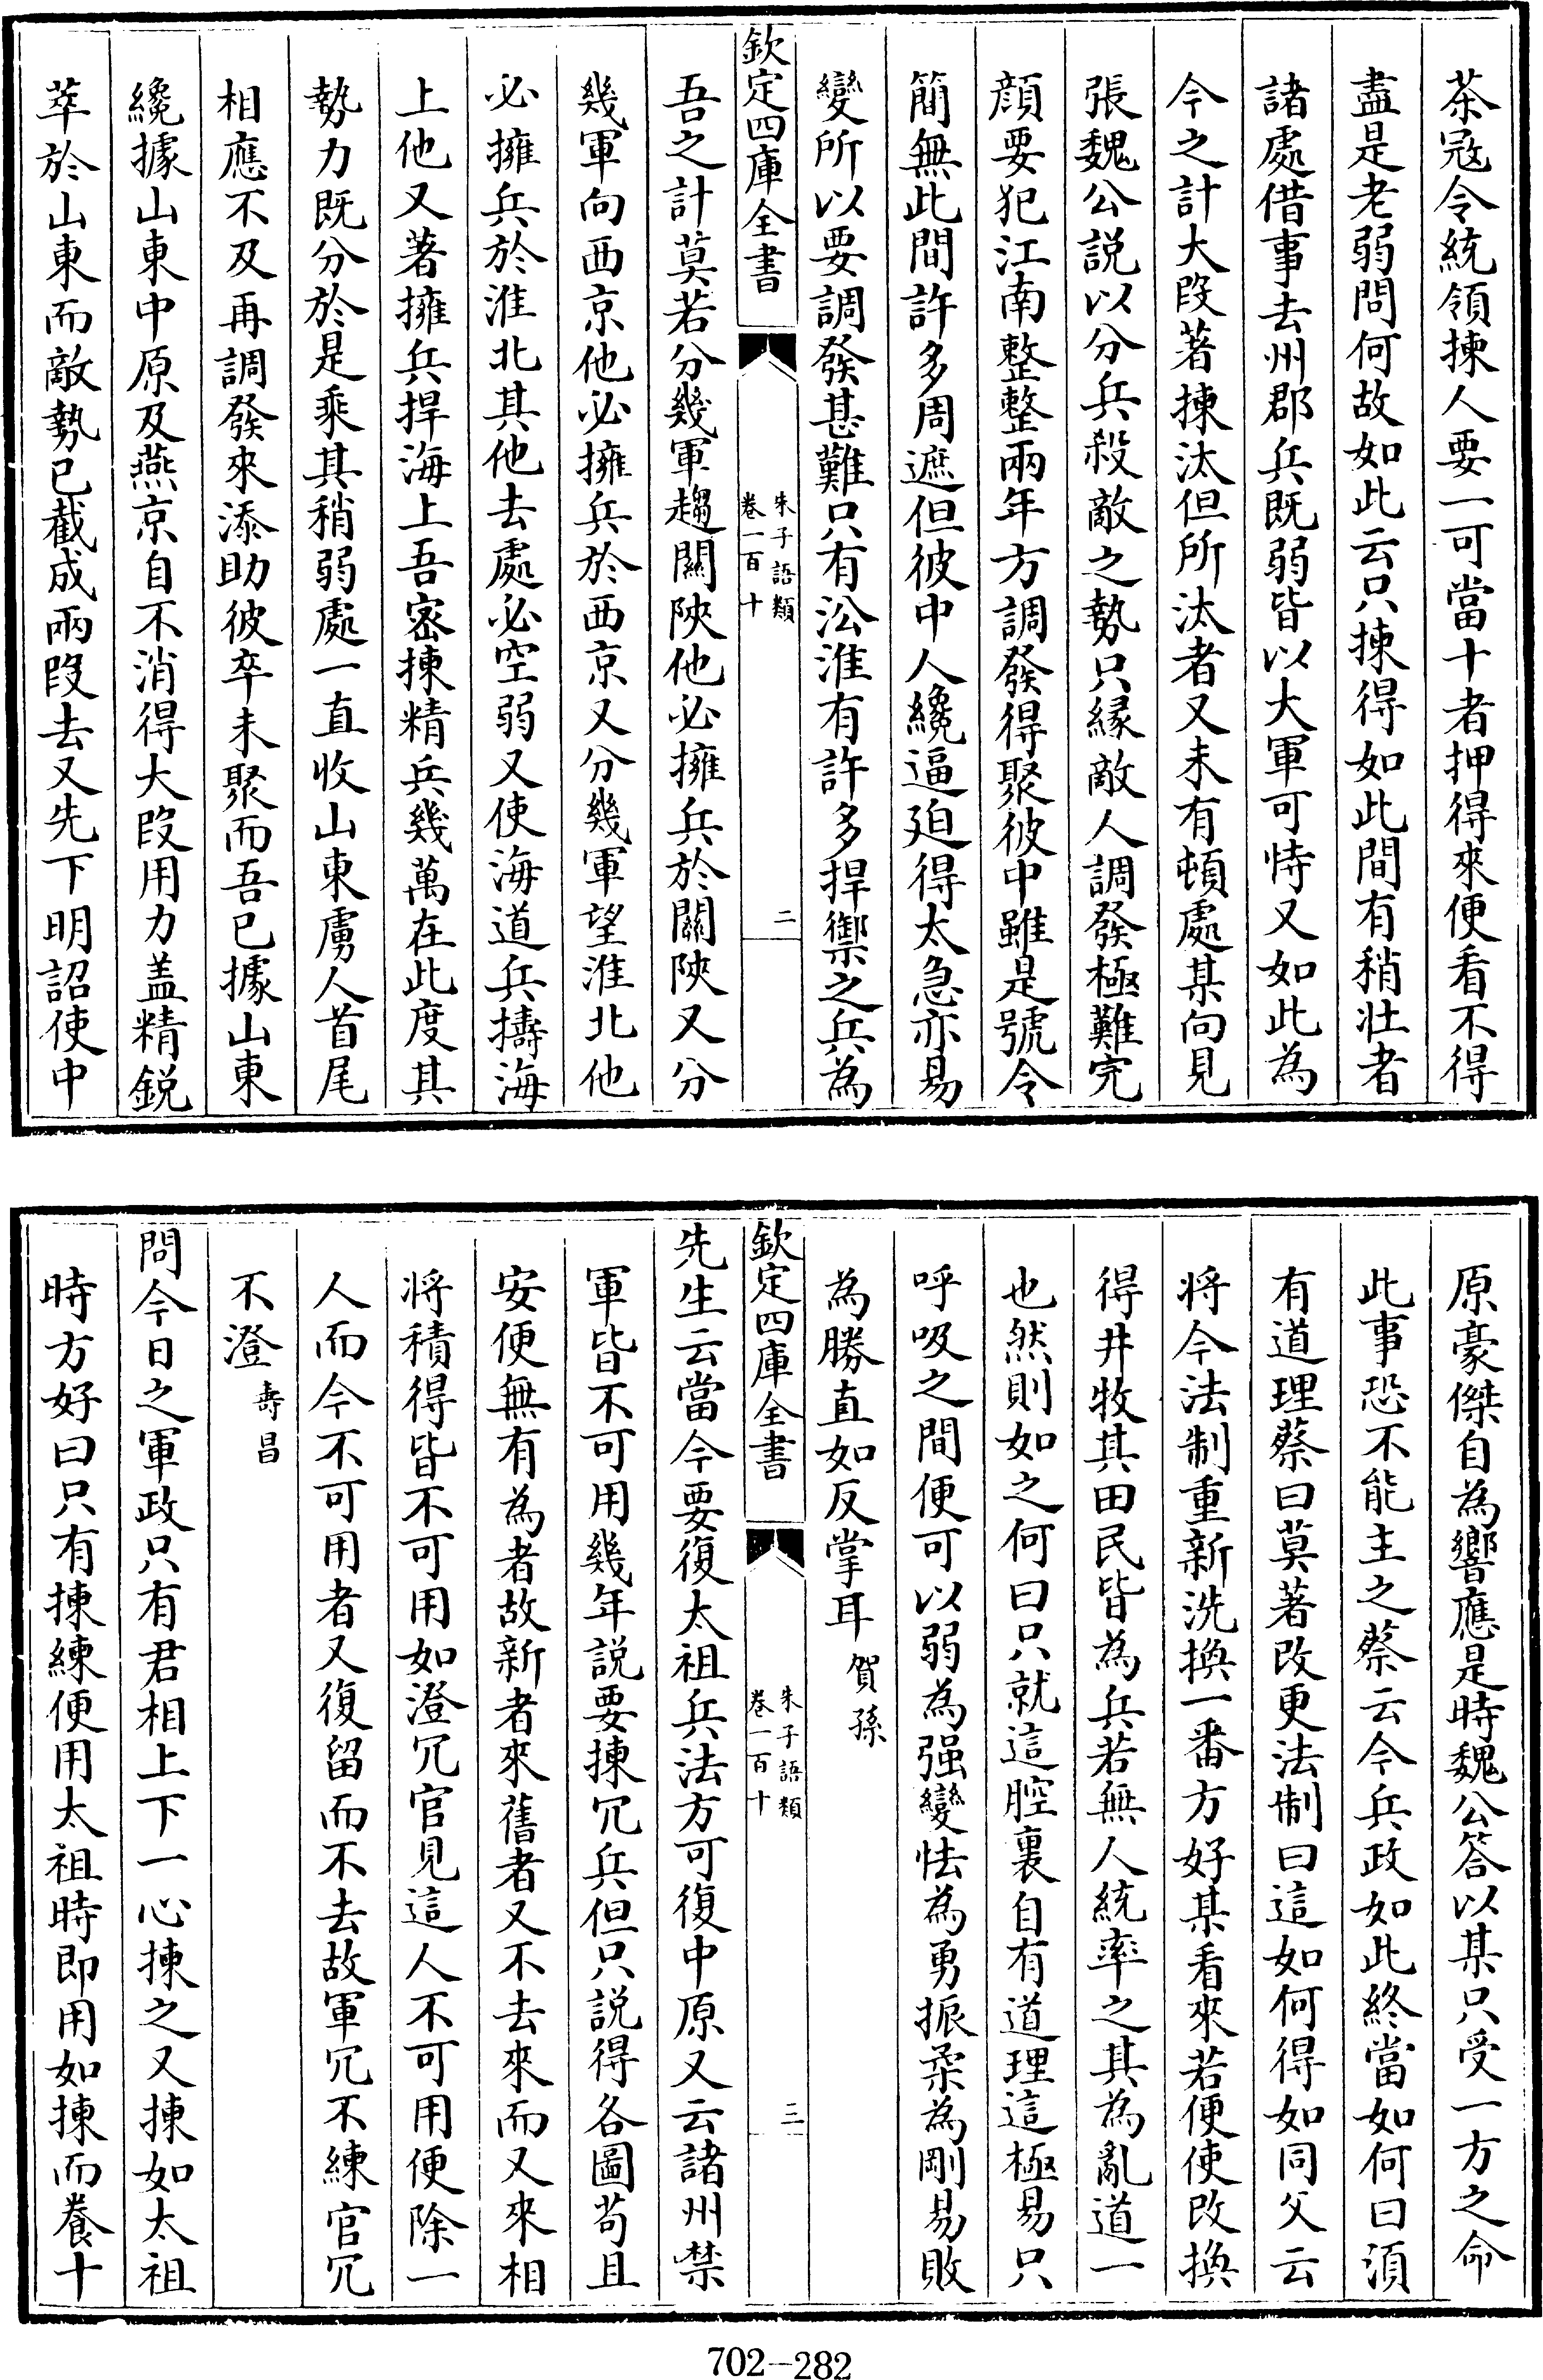 茶冦令統領揀人要一可當十者押得來便看不得
盡是老弱問何故如此云只揀得如此間有稍壯者
諸處借事去州郡兵既弱皆以大軍可恃又如此為
今之計大段著揀汰但所汰者又未有頓處某向見
張魏公説以分兵殺敵之勢只縁敵人調發極難完
顔要犯江南整整兩年方調發得聚彼中雖是號令
簡無此間許多周遮但彼中人纔逼廹得太急亦易
變所以要調發甚難只有㳂淮有許多捍禦之兵為
欽定四庫全書
朱子語類
卷一百十
二
吾之計莫若分幾軍趨關陜他必擁兵於關陜又分
幾軍向西京他必擁兵於西京又分幾軍望淮北他
必擁兵於淮北其他去處必空弱又使海道兵擣海
上他又著擁兵捍海上吾密揀精兵幾萬在此度其
勢力既分於是乘其稍弱處一直收山東虜人首尾
相應不及再調發來添助彼卒未聚而吾已據山東
纔據山東中原及燕京自不消得大段用力盖精鋭
萃於山東而敵勢已截成兩段去又先下明詔使中
原豪傑自為響應是時魏公答以某只受一方之命
此事恐不能主之蔡云今兵政如此終當如何曰須
有道理蔡曰莫著改更法制曰這如何得如同父云
將今法制重新洗換一番方好某看來若便使改換
得井牧其田民皆為兵若無人統率之其為亂道一
也然則如之何曰只就這腔裏自有道理這極易只
呼吸之間便可以弱為强變怯為勇振柔為剛易敗
為勝直如反掌耳賀孫
欽定四庫全書
朱子語類
卷一百十
三
先生云當今要復太祖兵法方可復中原又云諸州禁
軍皆不可用幾年説要揀冗兵但只説得各圖苟且
安便無有為者故新者來舊者又不去來而又來相
將積得皆不可用如澄冗官見這人不可用便除一
人而今不可用者又復留而不去故軍冗不練官冗
不澄壽昌
問今日之軍政只有君相上下一心揀之又揀如太祖
時方好曰只有揀練便用太祖時即用如揀而養十
702-282